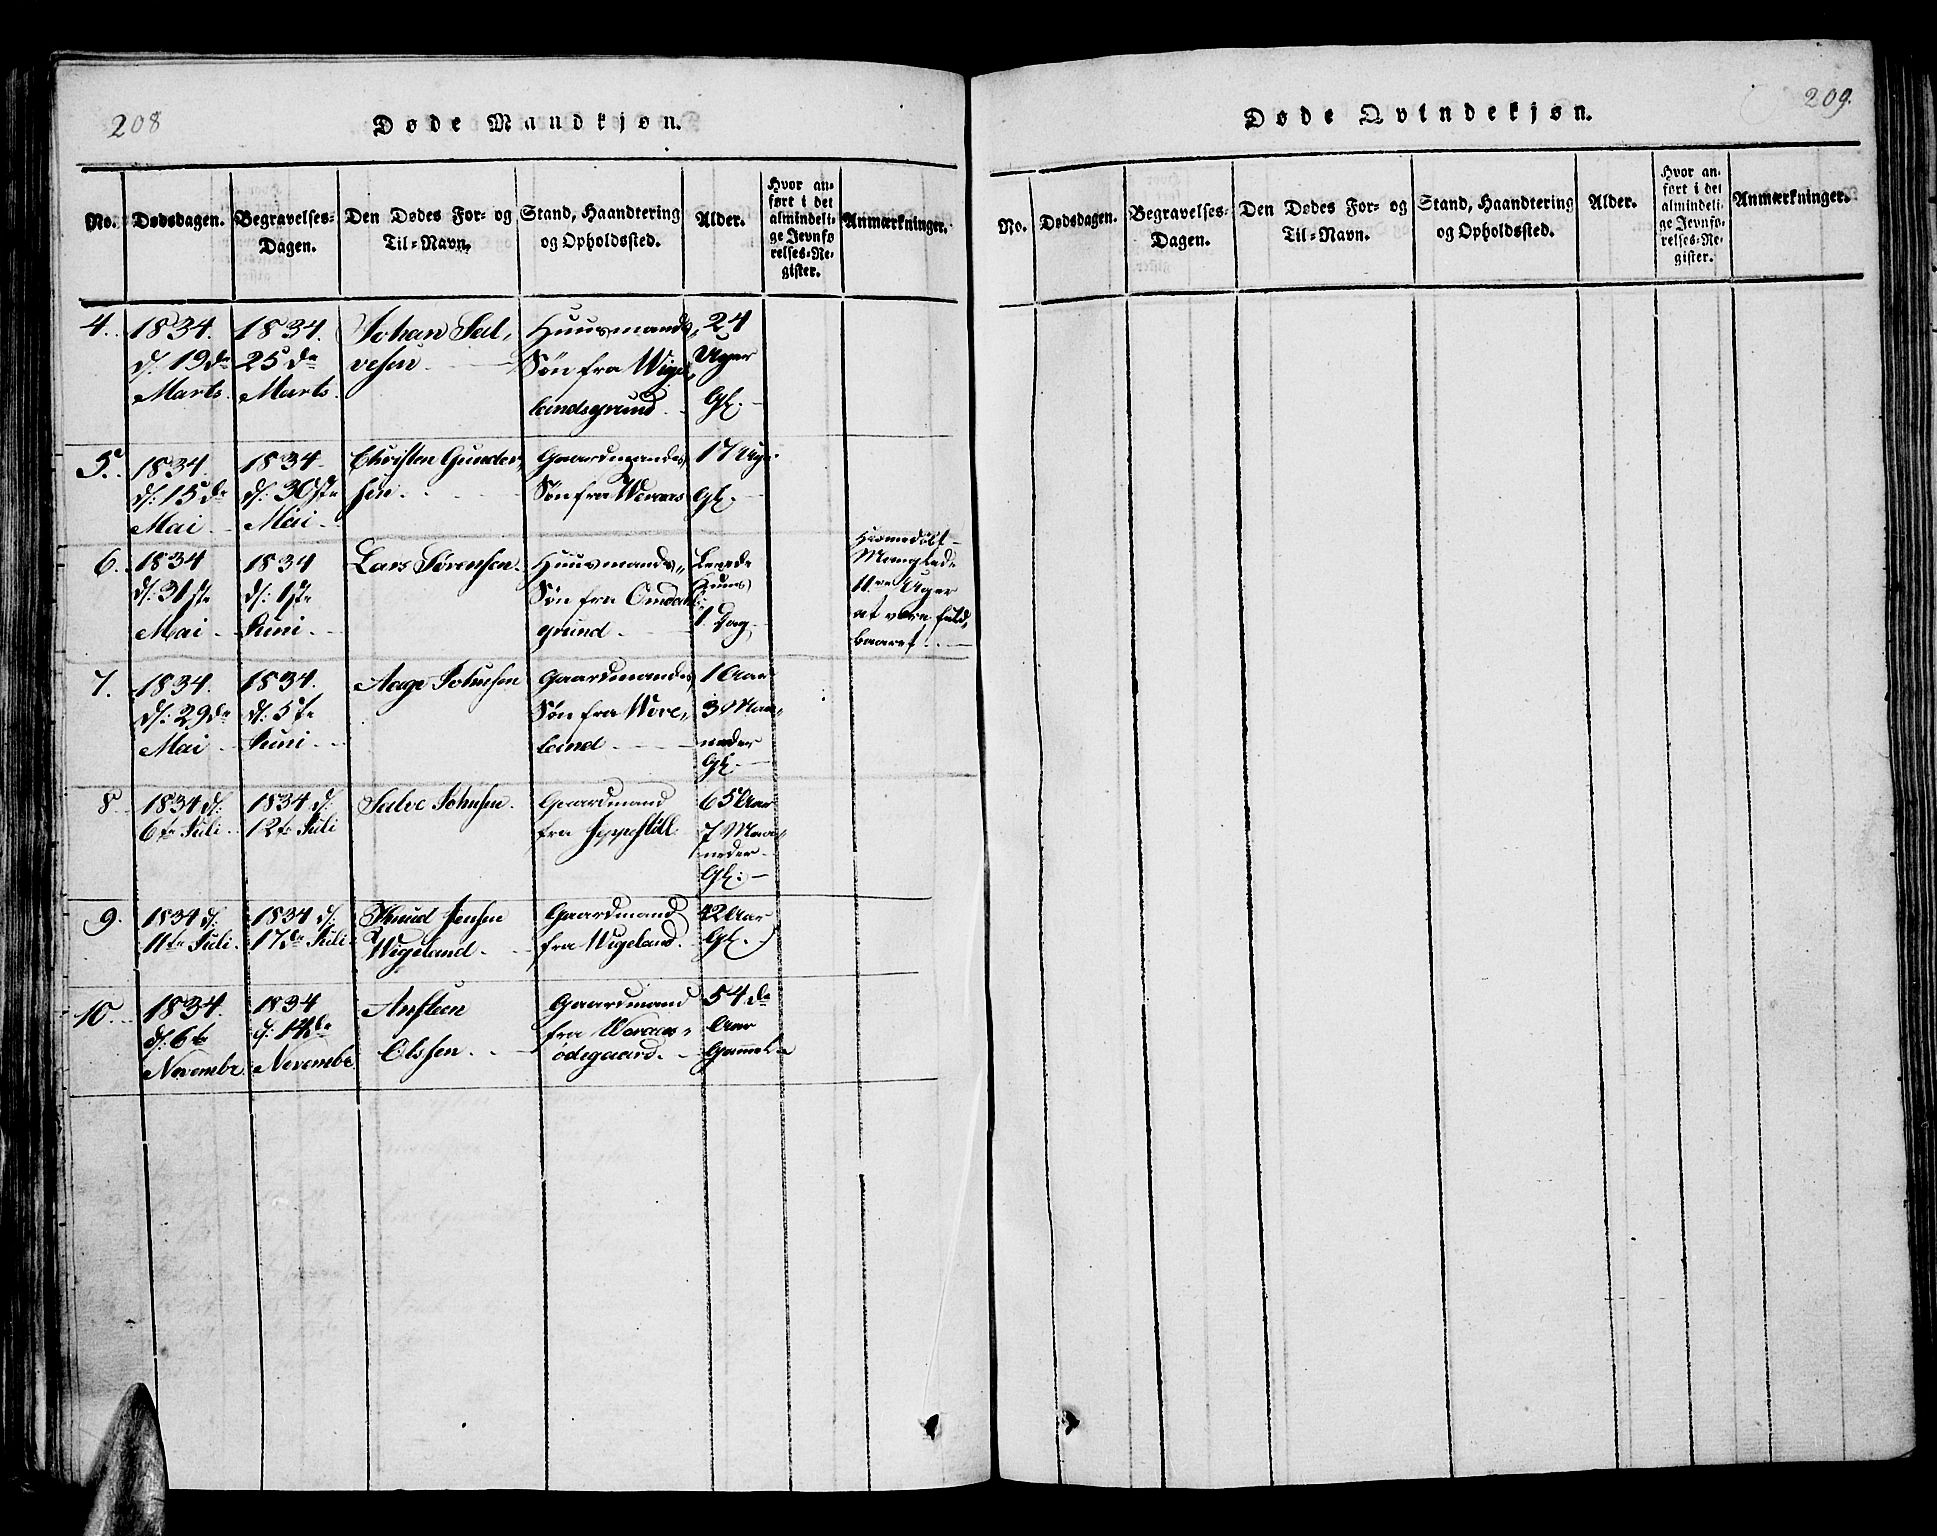 208
Døde Mandkjøn.
No.
Dødsdagen.
Begravelses-
Dagen.
Den Dødes For- og
Til-Navn.
Stand, Haandtering
og Opholdssted.
Alder.
Hvor an-
ført i det
almindeli-
ge Jevnfø
relses-Re-
gister.
Anmærkninger.
4.
1834.
d. 19de
Marts.
1834.
25de
Marts.
Johan Sal,
vesen
Huusmands,
Søn fra Wige,
landsgrund
24
Uger
Gl.
5.
1834.
d: 15de
Mai
1834.
d: 30ste
Mai
Christen Gunder,
sen
Gaardmands,
Søn fra Woraas
17 Uger
Gl.
6.
1834
d: 31ste
Mai
1834
d: 1ste
Juni
Lars Sørensen
Huusmands,,
Søn fra Omdals
grund
Levede
kuns
1 Dag
Hiemedøbt
Manglede
11ve Uger
at være fuld,
baaret
7.
1834.
d: 29de
Mai
1834.
d: 5te
Juni
Aage Johnsen
Gaardmands,
Søn fra Wore,,
land
1 Aar
3 Maa,,
neder
Gl.
8
1834 d:
6te Juli
1834 d:
12te Juli
Salve Johnsen.
Gaardmand
fra Jeppestøll
65 Aar
7 Maa,,
neder
Gl:
9.
1834 d:
11te Juli.
1834 d:
17de Juli
Knud Jensen
Wigeland
Gaardmand
fra Wigeland.
42 Aar
Gl.
10
1834.
d: 6te
Novembr
1834
d: 14de
Novembr
Ansteen
Olssen
Gaardmand
fra Woraas,
ødegaard
54de
Aar
Gammel
209.
Døde Qvindekjøn.
No.
Dødsdagen.
Begravelses-
Dagen.
Den Dødes For- og
Til-Navn.
Stand, Haandtering
og Opholdssted.
Alder.
Hvor an-
ført i det
almindeli-
ge Jevnfø-
relses-Re-
gister.
Anmærkninger.